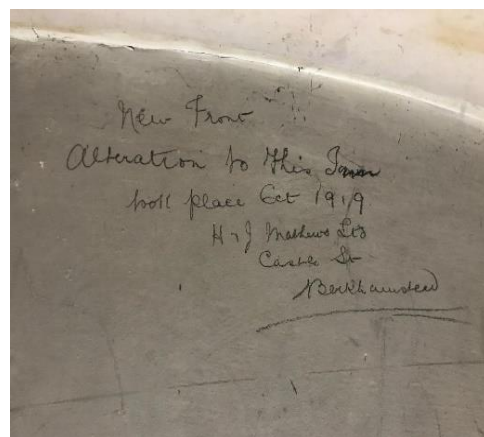 New Front
Alteration to This Inn
took place Oct 1919
H & J Mathews Ltd
Castle St
Berkhamsted